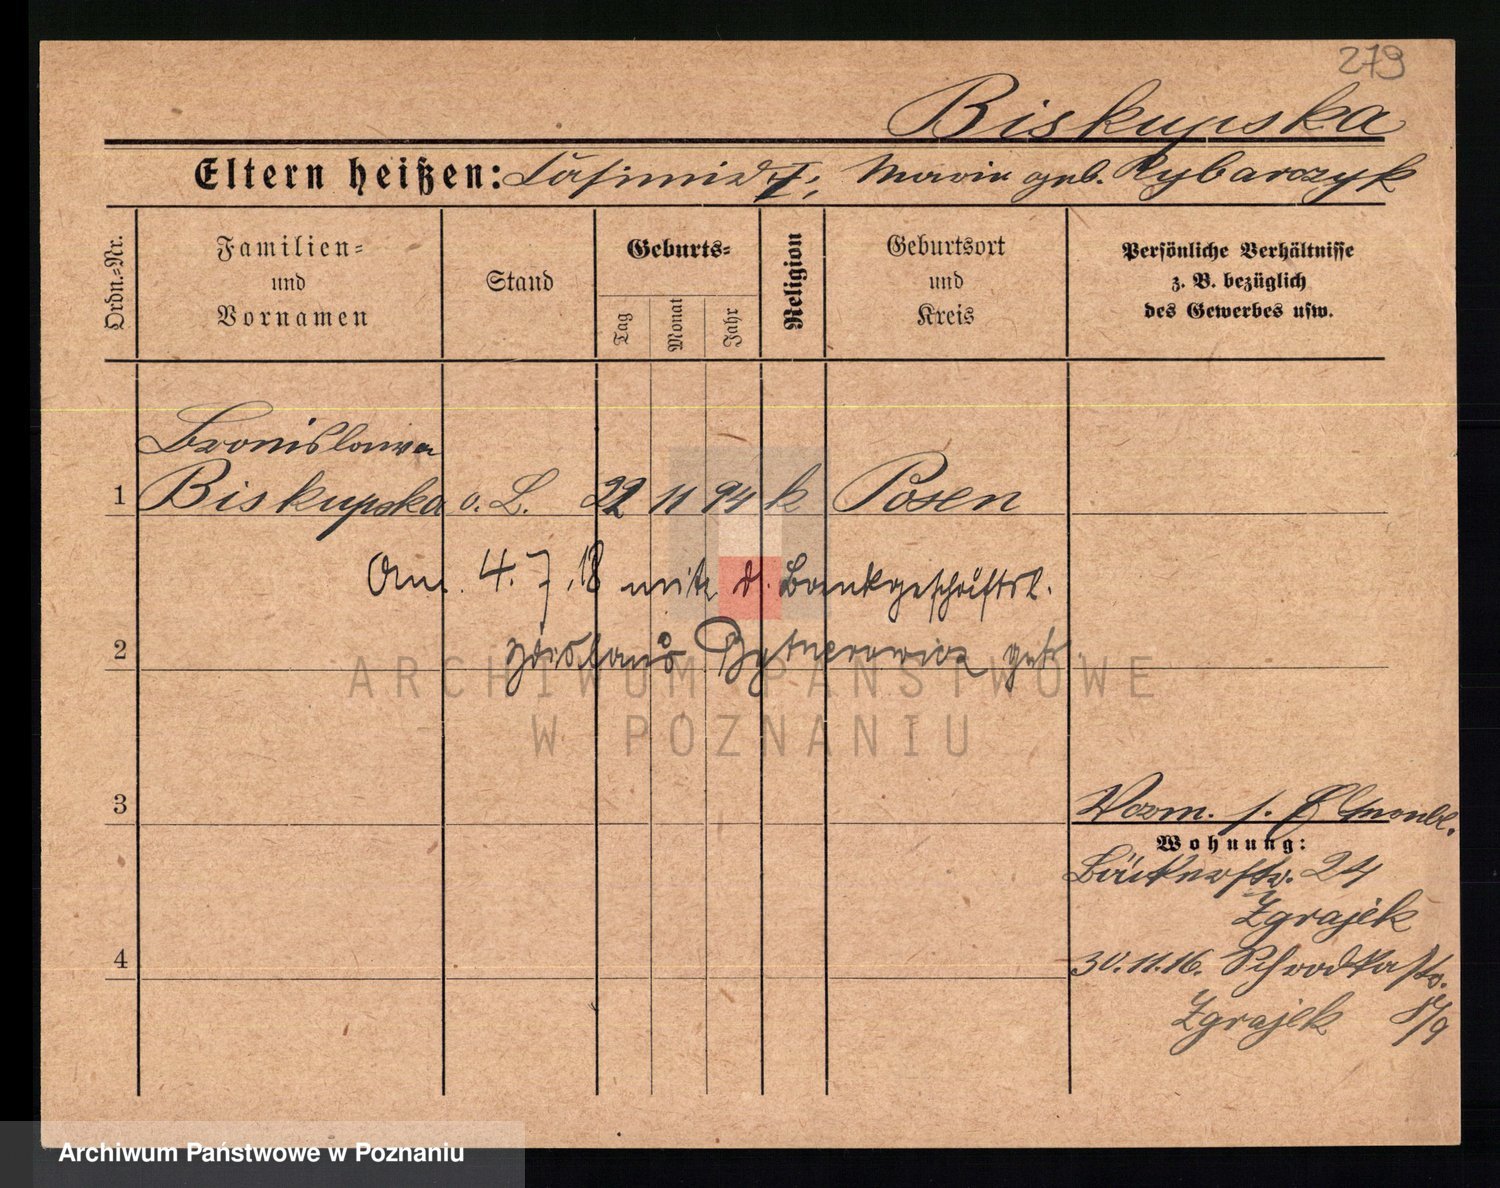 279
Biskupska
Eltern heißen: Casimir †, Maria geb. Rybarczyk
Ordn.-Nr.
Familien- und Vornamen
Stand
Geburts-
Tag
Monat
Jahr
Religion
Geburtsort und Kreis
Persönliche Verhältnisse
z. B. bezüglich
des Gewerbes usw.
Bronislawa
1 Biskupska o. L. 22 11 94 k Posen
Am 4. 7. 18 mit d. Bankgeschäftsl.
2
ARCHIWUM PAŃSTWOWE
W POZNANIU
3
Vorm. s.
Wohnung:
Bäckerstr. 24
Zgrajek
4 30.11.16. Schrodkastr.
Zgrajek 8/9
Archiwum Państwowe w Poznaniu